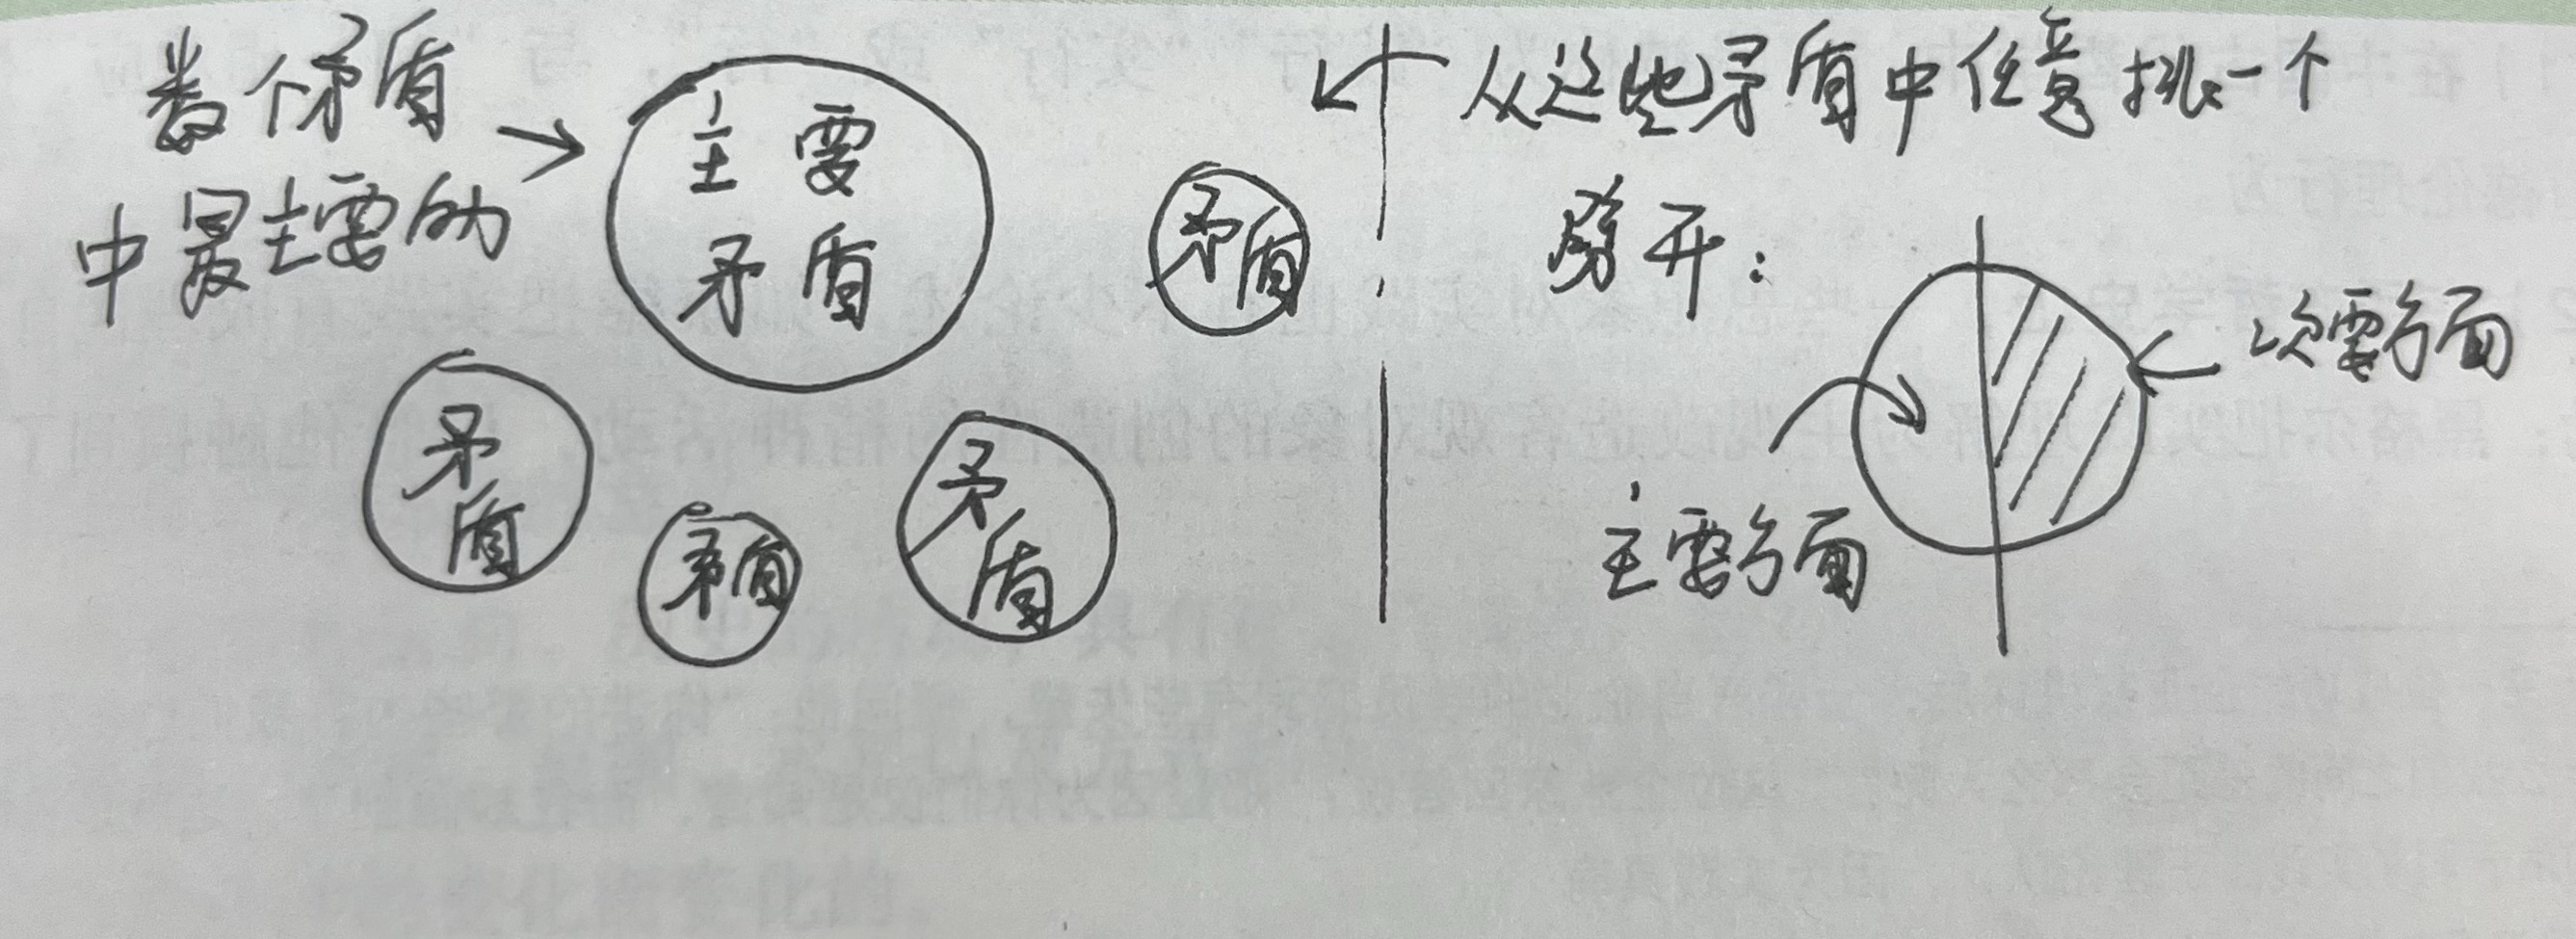 数个矛盾
中最主要的
主要
矛盾
矛盾
矛
盾
矛盾
矛
盾
从这些矛盾中任意挑一个
劈开：
次要方面
主要方面